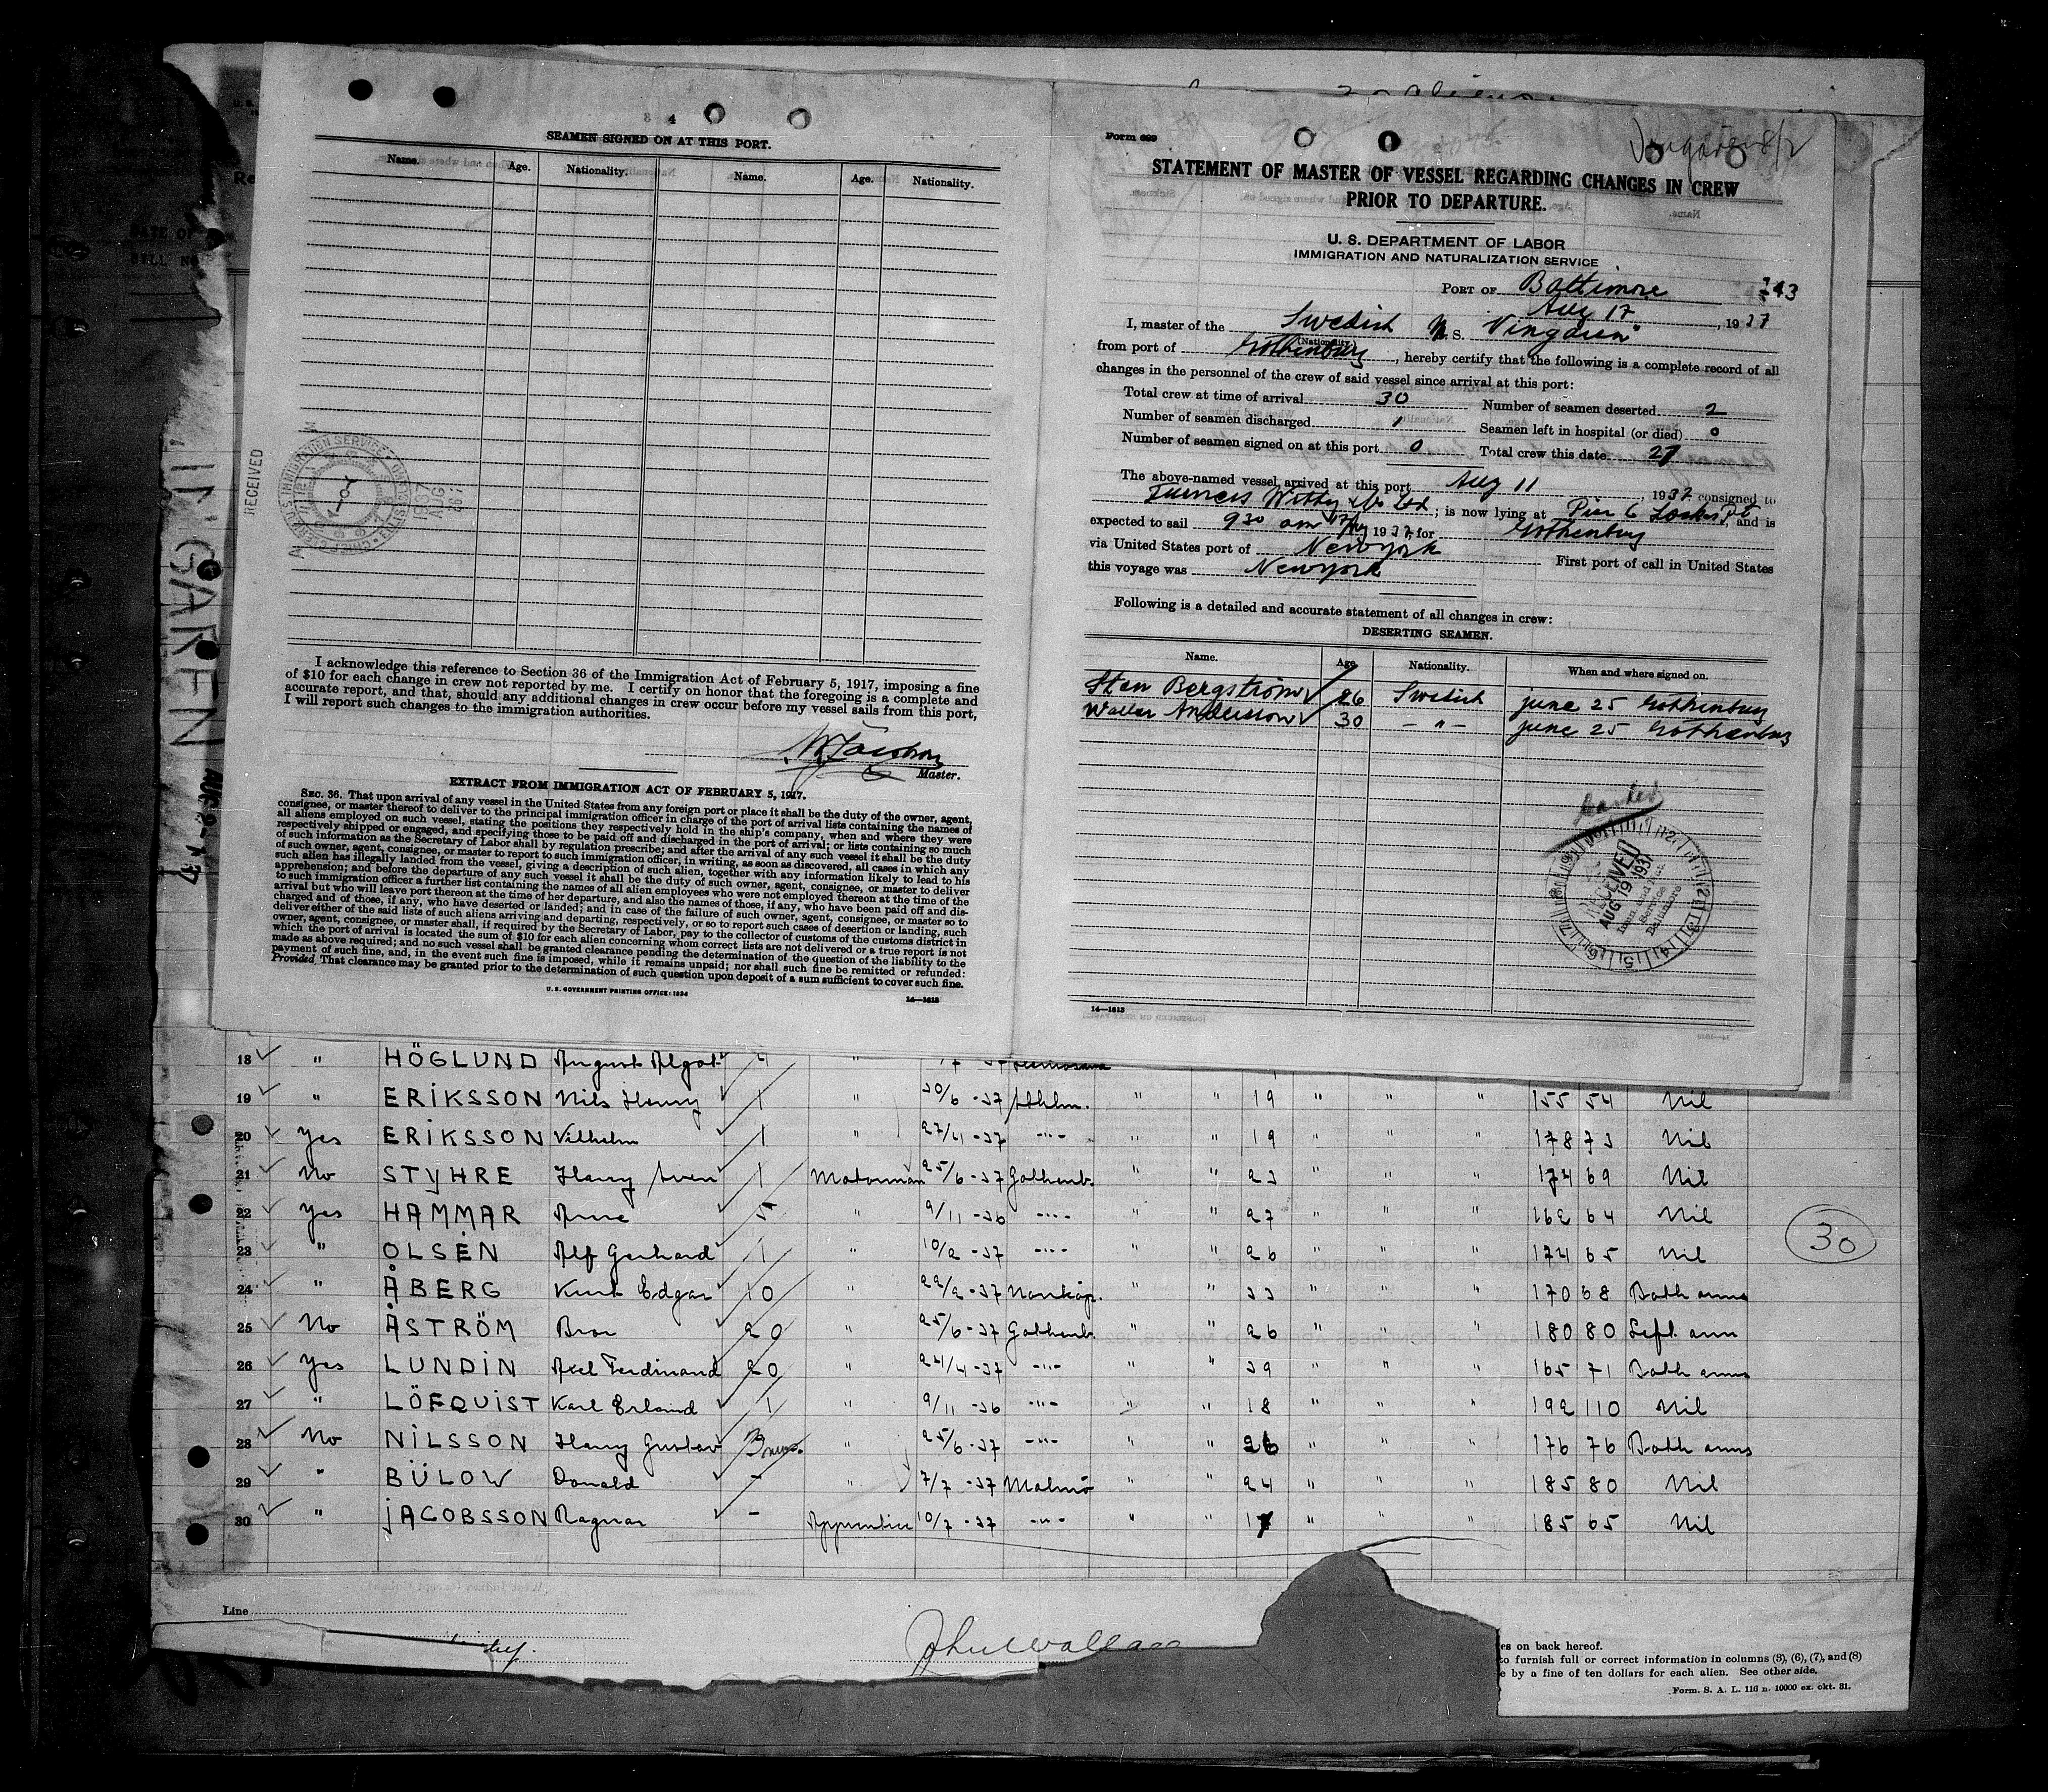 SEAMEN SIGNED ON AT THIS PORT.
Name. Age. Nationality. Name. Age. Nationality.
RECEIVED
I acknowledge this reference to Section 36 of the Immigration Act of February 5, 1917, imposing a fine
of $10 for each change in crew not reported by me. I certify on honor that the foregoing is a complete and
accurate report, and that, should any additional changes in crew occur before my vessel sails from this port,
I will report such changes to the immigration authorities.
Master.
EXTRACT FROM IMMIGRATION ACT OF FEBRUARY 5, 1917.
SEC. 36. That upon arrival of any vessel in the United States from any foreign port or place it shall be the duty of the owner, agent,
consignee, or master thereof to deliver to the principal immigration officer in charge of the port of arrival lists containing the names of
all aliens employed on such vessel, stating the positions they respectively hold in the ship's company, when and where they were
respectively shipped or engaged, and specifying those to be paid off and discharged in the port of arrival; or lists containing so much
of such information as the Secretary of Labor shall by regulation prescribe; and after the arrival of any such vessel it shall be the duty
of such owner, agent, consignee, or master to report to such immigration officer, in writing, as soon as discovered, all cases in which any
such alien has illegally landed from the vessel, giving a description of such alien, together with any information likely to lead to his
apprehension; and before the departure of any such vessel it shall be the duty of such owner, agent, consignee, or master to deliver
to such immigration officer a further list containing the names of all alien employees who were not employed thereon at the time of the
arrival but who will leave port thereon at the time of her departure, and also the names of those, if any, who have been paid off and dis-
charged and of those, if any, who have deserted or landed; and in case of the failure of such owner, agent, consignee, or master so to
deliver either of the said lists of such aliens arriving and departing, respectively, or so to report such cases of desertion or landing, such
owner, agent, consignee, or master shall, if required by the Secretary of Labor, pay to the collector of customs of the customs district in
which the port of arrival is located the sum of $10 for each alien concerning whom correct lists are not delivered or a true report is not
made as above required; and no such vessel shall be granted clearance pending the determination of the question of the liability to the
payment of such fine, and, in the event such fine is imposed, while it remains unpaid; nor shall such fine be remitted or refunded:
Provided, That clearance may be granted prior to the determination of such question upon deposit of a sum sufficient to cover such fine.
U. S. GOVERNMENT PRINTING OFFICE: 1934 14—1613
Form 689
STATEMENT OF MASTER OF VESSEL REGARDING CHANGES IN CREW
PRIOR TO DEPARTURE.
U. S. DEPARTMENT OF LABOR
IMMIGRATION AND NATURALIZATION SERVICE
PORT OF Baltimore
Aug 17, 1937
I, master of the Swedish M. S. "Vingaren"
(Nationality)
from port of Gothenburg, hereby certify that the following is a complete record of all
changes in the personnel of the crew of said vessel since arrival at this port:
Total crew at time of arrival 30 Number of seamen deserted 2
Number of seamen discharged 1 Seamen left in hospital (or died) 0
Number of seamen signed on at this port 0 Total crew this date 27
The above-named vessel arrived at this port Aug 11, 1937 consigned to
Furness Withy & Co Ltd; is now lying at Pier 6 Locust Pt, and is
expected to sail 9 30 am 17/Aug 1937, for Gothenburg
via United States port of New York First port of call in United States
this voyage was New York
Following is a detailed and accurate statement of all changes in crew:
DESERTING SEAMEN.
Name. Age. Nationality. When and where signed on.
Sten Bergström 26 Swedish june 25 Gothenburg
Walter Andersson 30 -"- june 25 Gothenburg
RECEIVED
AUG 19 1937
Baltimore
14—1613
18 " HÖGLUND August Algot 4 "
19 " ERIKSSON Nils Henry 1 " 30/6 -37 Sthlm. " " 19 " " " 155 54 Nil
20 Yes ERIKSSON Vilhelm 1 " 27/4 -37 -"- " " 19 " " " 178 73 Nil
21 No STYHRE Harry Sven 1 Motorman 25/6 -37 Gothenb. " " 23 " " " 174 69 Nil
22 Yes HAMMAR Arne 5 " 9/11 -36 -"- " " 27 " " " 162 64 Nil
23 " OLSÉN Alf Gerhard 1 " 10/2 -37 -"- " " 26 " " " 174 65 Nil
24 " ÅBERG Kurt Edgar 10 " 22/2 -37 Norrköp. " " 33 " " " 170 68 Both arms
25 No ÅSTRÖM Bror 20 " 25/6 -37 Gothenb. " " 26 " " " 180 80 Left arm
26 Yes LUNDIN Axel Ferdinand 20 " 24/4 -37 -"- " " 39 " " " 165 71 Both arms
27 " LÖFQUIST Karl Erland 1 " 9/11 -36 -"- " " 18 " " " 192 110 Nil
28 No NILSSON Harry Gustav 3 " 25/6 -37 -"- " " 26 " " " 176 76 Both arms
29 " BÜLOW Donald - " 7/7 -37 Malmö " " 24 " " " 185 80 Nil
30 " JACOBSSON Ragnar - Apprentice 10/7 -37 -"- " " 17 " " " 185 65 Nil
30
Line
John Wallace
es on back hereof.
to furnish full or correct information in columns (3), (6), (7), and (8)
e by a fine of ten dollars for each alien. See other side.
Form. S. A. L. 116 n. 10000 ex. okt. 31.